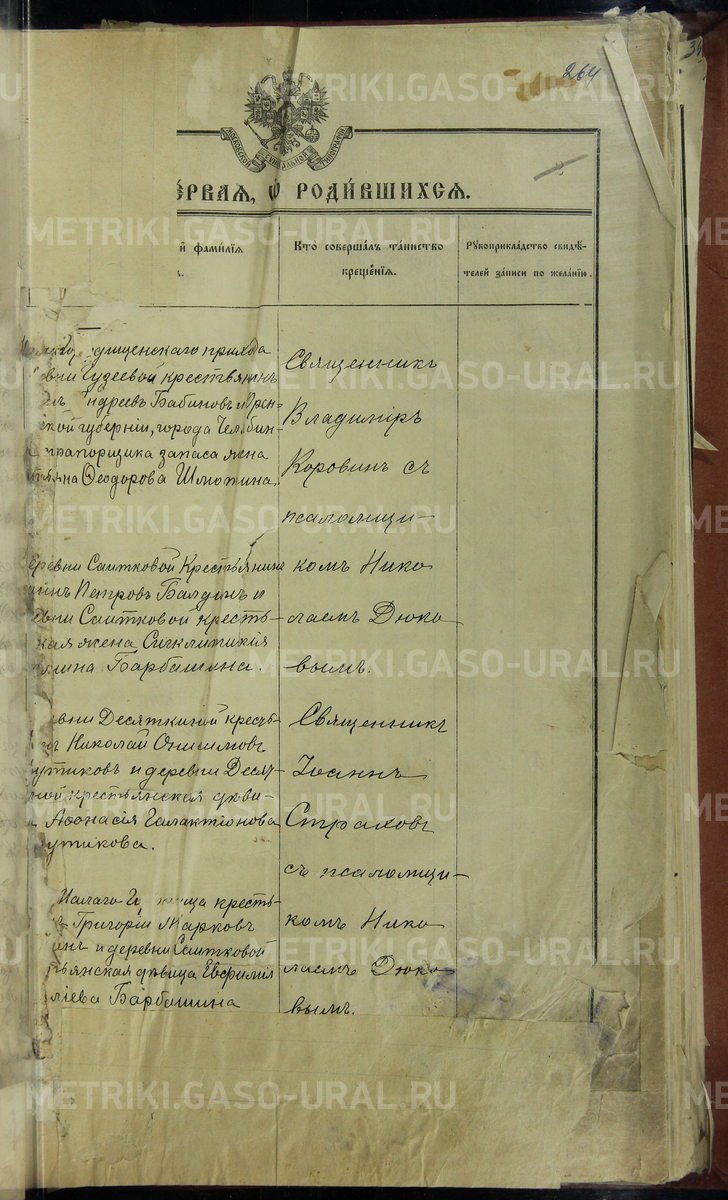 264
МОСКОВСКОЙ СѴНОДАЛЬНОЙ ТИПОГРАФІИ
ЕРВАЯ, Ѡ РОДИВШИХСЯ.
й фамилія
Кто совершалъ таинство
крещенія.
Рукоприкладство свидѣ-
телей записи по желанію.
дищенскаго прихода
вни Гудеевой крестьянинъ
ндреевъ Бабиновъ и Орен-
ской губерніи, города Челябин-
прапорщика запаса жена
Ѳеодорова Шмотина.
Священникъ
Владиміръ
Коровинъ съ
псаломщи-
комъ Нико
лаемъ Дюко
вымъ.
еревни Саитковой Крестьянинъ
Петровъ Балдинъ и
евни Саитковой кресть-
кая жена Сигклитикія
Барбашина.
вни Десяткиной крест
ъ Николай Онисимовъ
утиковъ и деревни Десят-
ной крестьянская дѣви-
Аѳонасія Галактіонова
утикова.
Священникъ
Іоаннъ
Страховъ
съ псаломщи-
комъ Нико
лаемъ Дюко
вымъ.
Малаго ща кресть-
Григорій Марковъ
инъ и деревни Саитковой
тьянская дѣвица Евфимія
Барбашина
METRIKI.GASO-URAL.RU